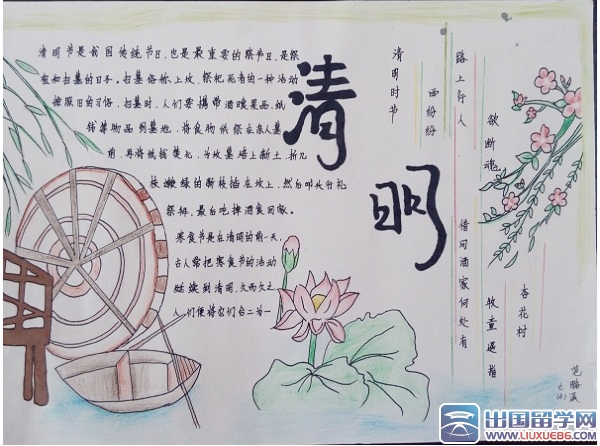 清明节是我国传统节日，也是最重要的祭节日，是祭
祖和扫墓的日子。扫墓俗称上坟，祭祀死者的一种活动
按照旧的习俗，扫墓时，人们要携带酒食果品，纸
钱等物品到墓地，将食物供祭在亲人墓
前，再将纸钱焚化，为坟墓培上新土，折几
枝嫩绿的新枝插在坟上，然后叩头行礼
祭拜，最后吃掉酒食回家。
寒食节是在清明的前一天，
古人常把寒食节的活动
延续到清明，久而久之
人们便将它们合二为一
清明
清明时节
雨纷纷
路上行人
欲断魂
借问酒家何处有
牧童遥指
杏花村
七
出国留学网
WWW.LIUXUE86.COM